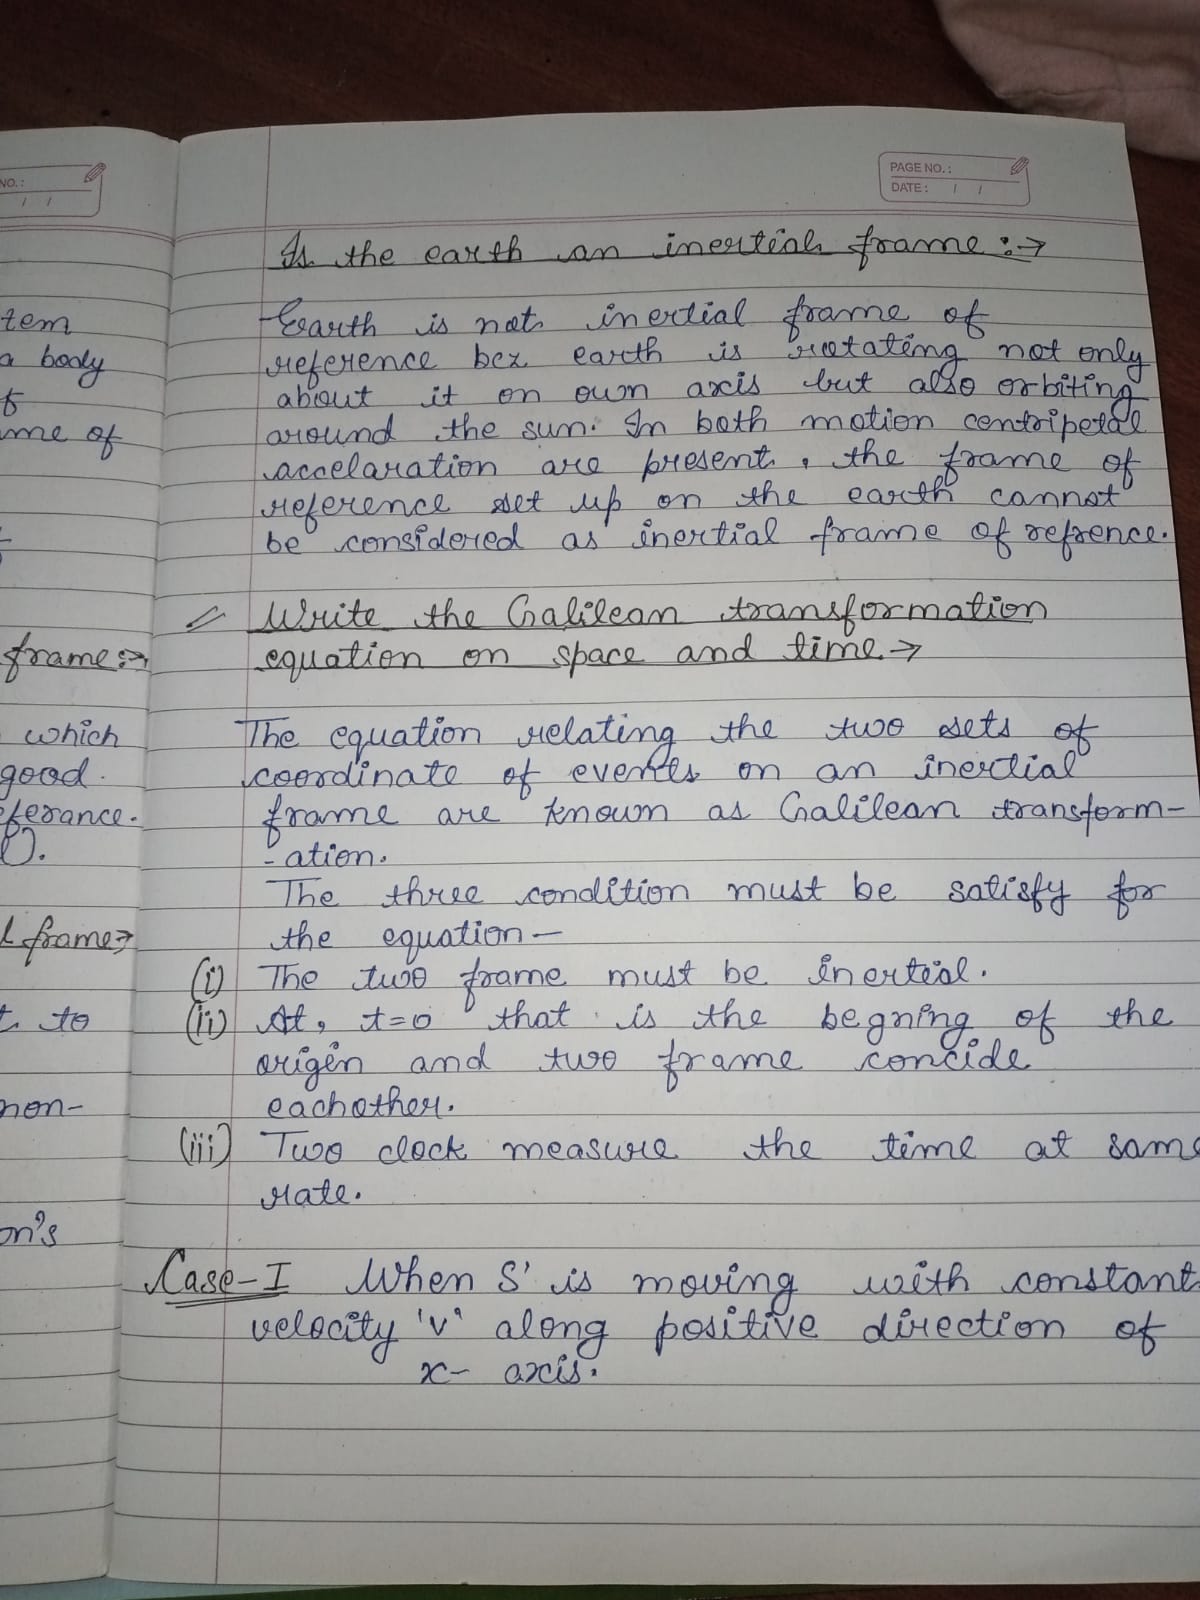 NO.:
/ /
tem
a body
me of
frame:→
which
good.
eferance.
l frame→
to
non-
on's
PAGE NO.:
DATE: / /
Is the earth an inertial frame:→
Earth is not inertial frame of
reference bcz earth is rotating not only
about it on own axis but also orbiting
around the sun. In both motion centripetal
accelaration are present, the frame of
reference set up on the earth cannot
be considered as inertial frame of refrence.
Write the Galilean transformation
equation on space and time.→
The equation relating the two sets of
coordinate of events on an inertial
frame are known as Galilean transform-
-ation.
The three condition must be satisfy for
the equation—
(i) The two frame must be inertial.
(ii) At, t=0 that is the begning of the
origin and two frame concide
eachother.
(iii) Two clock measure the time at same
rate.
Case-I When S' is moving with constant
velocity 'v' along positive direction of
x- axis.